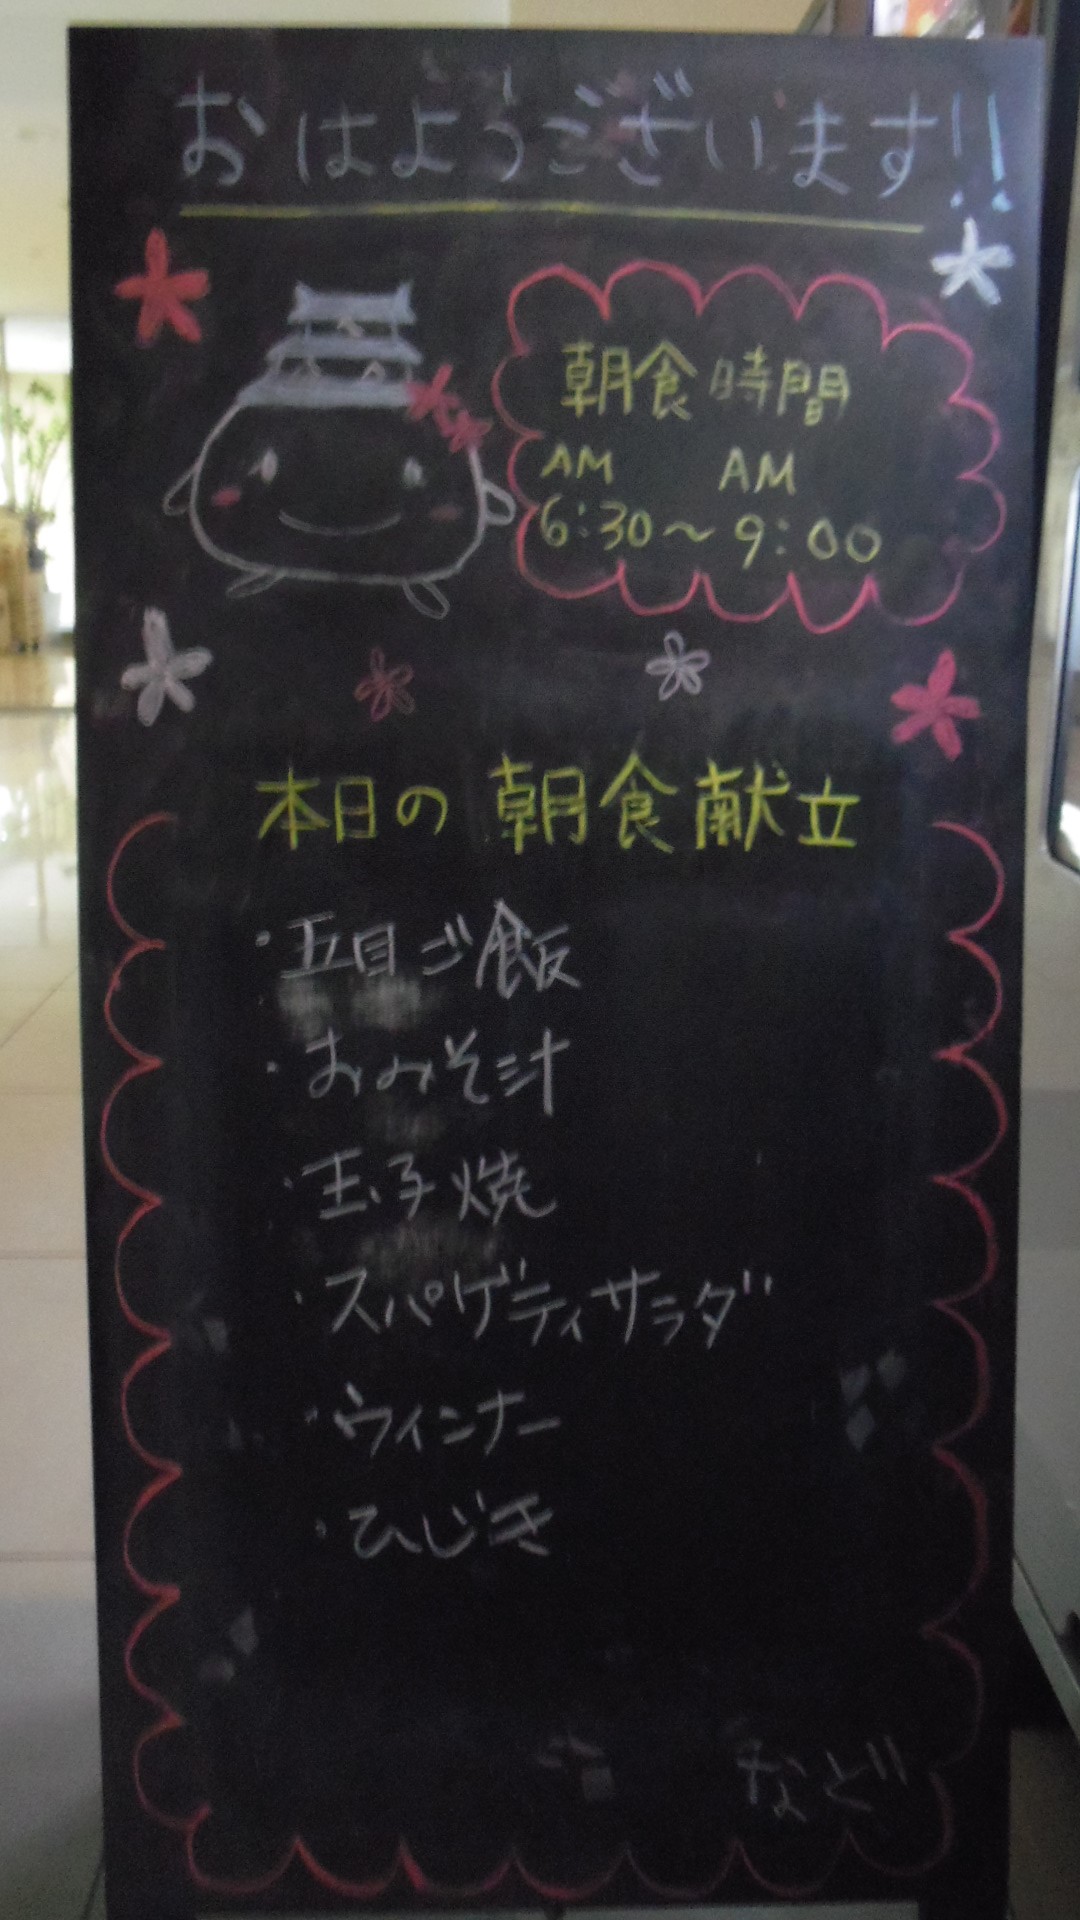 おはようございます!!
朝食時間
AM AM
6:30～9:00
本日の朝食献立
・五目ご飯
・おみそ汁
・玉子焼
・スパゲティサラダ
・ウィンナー
・ひじき
など